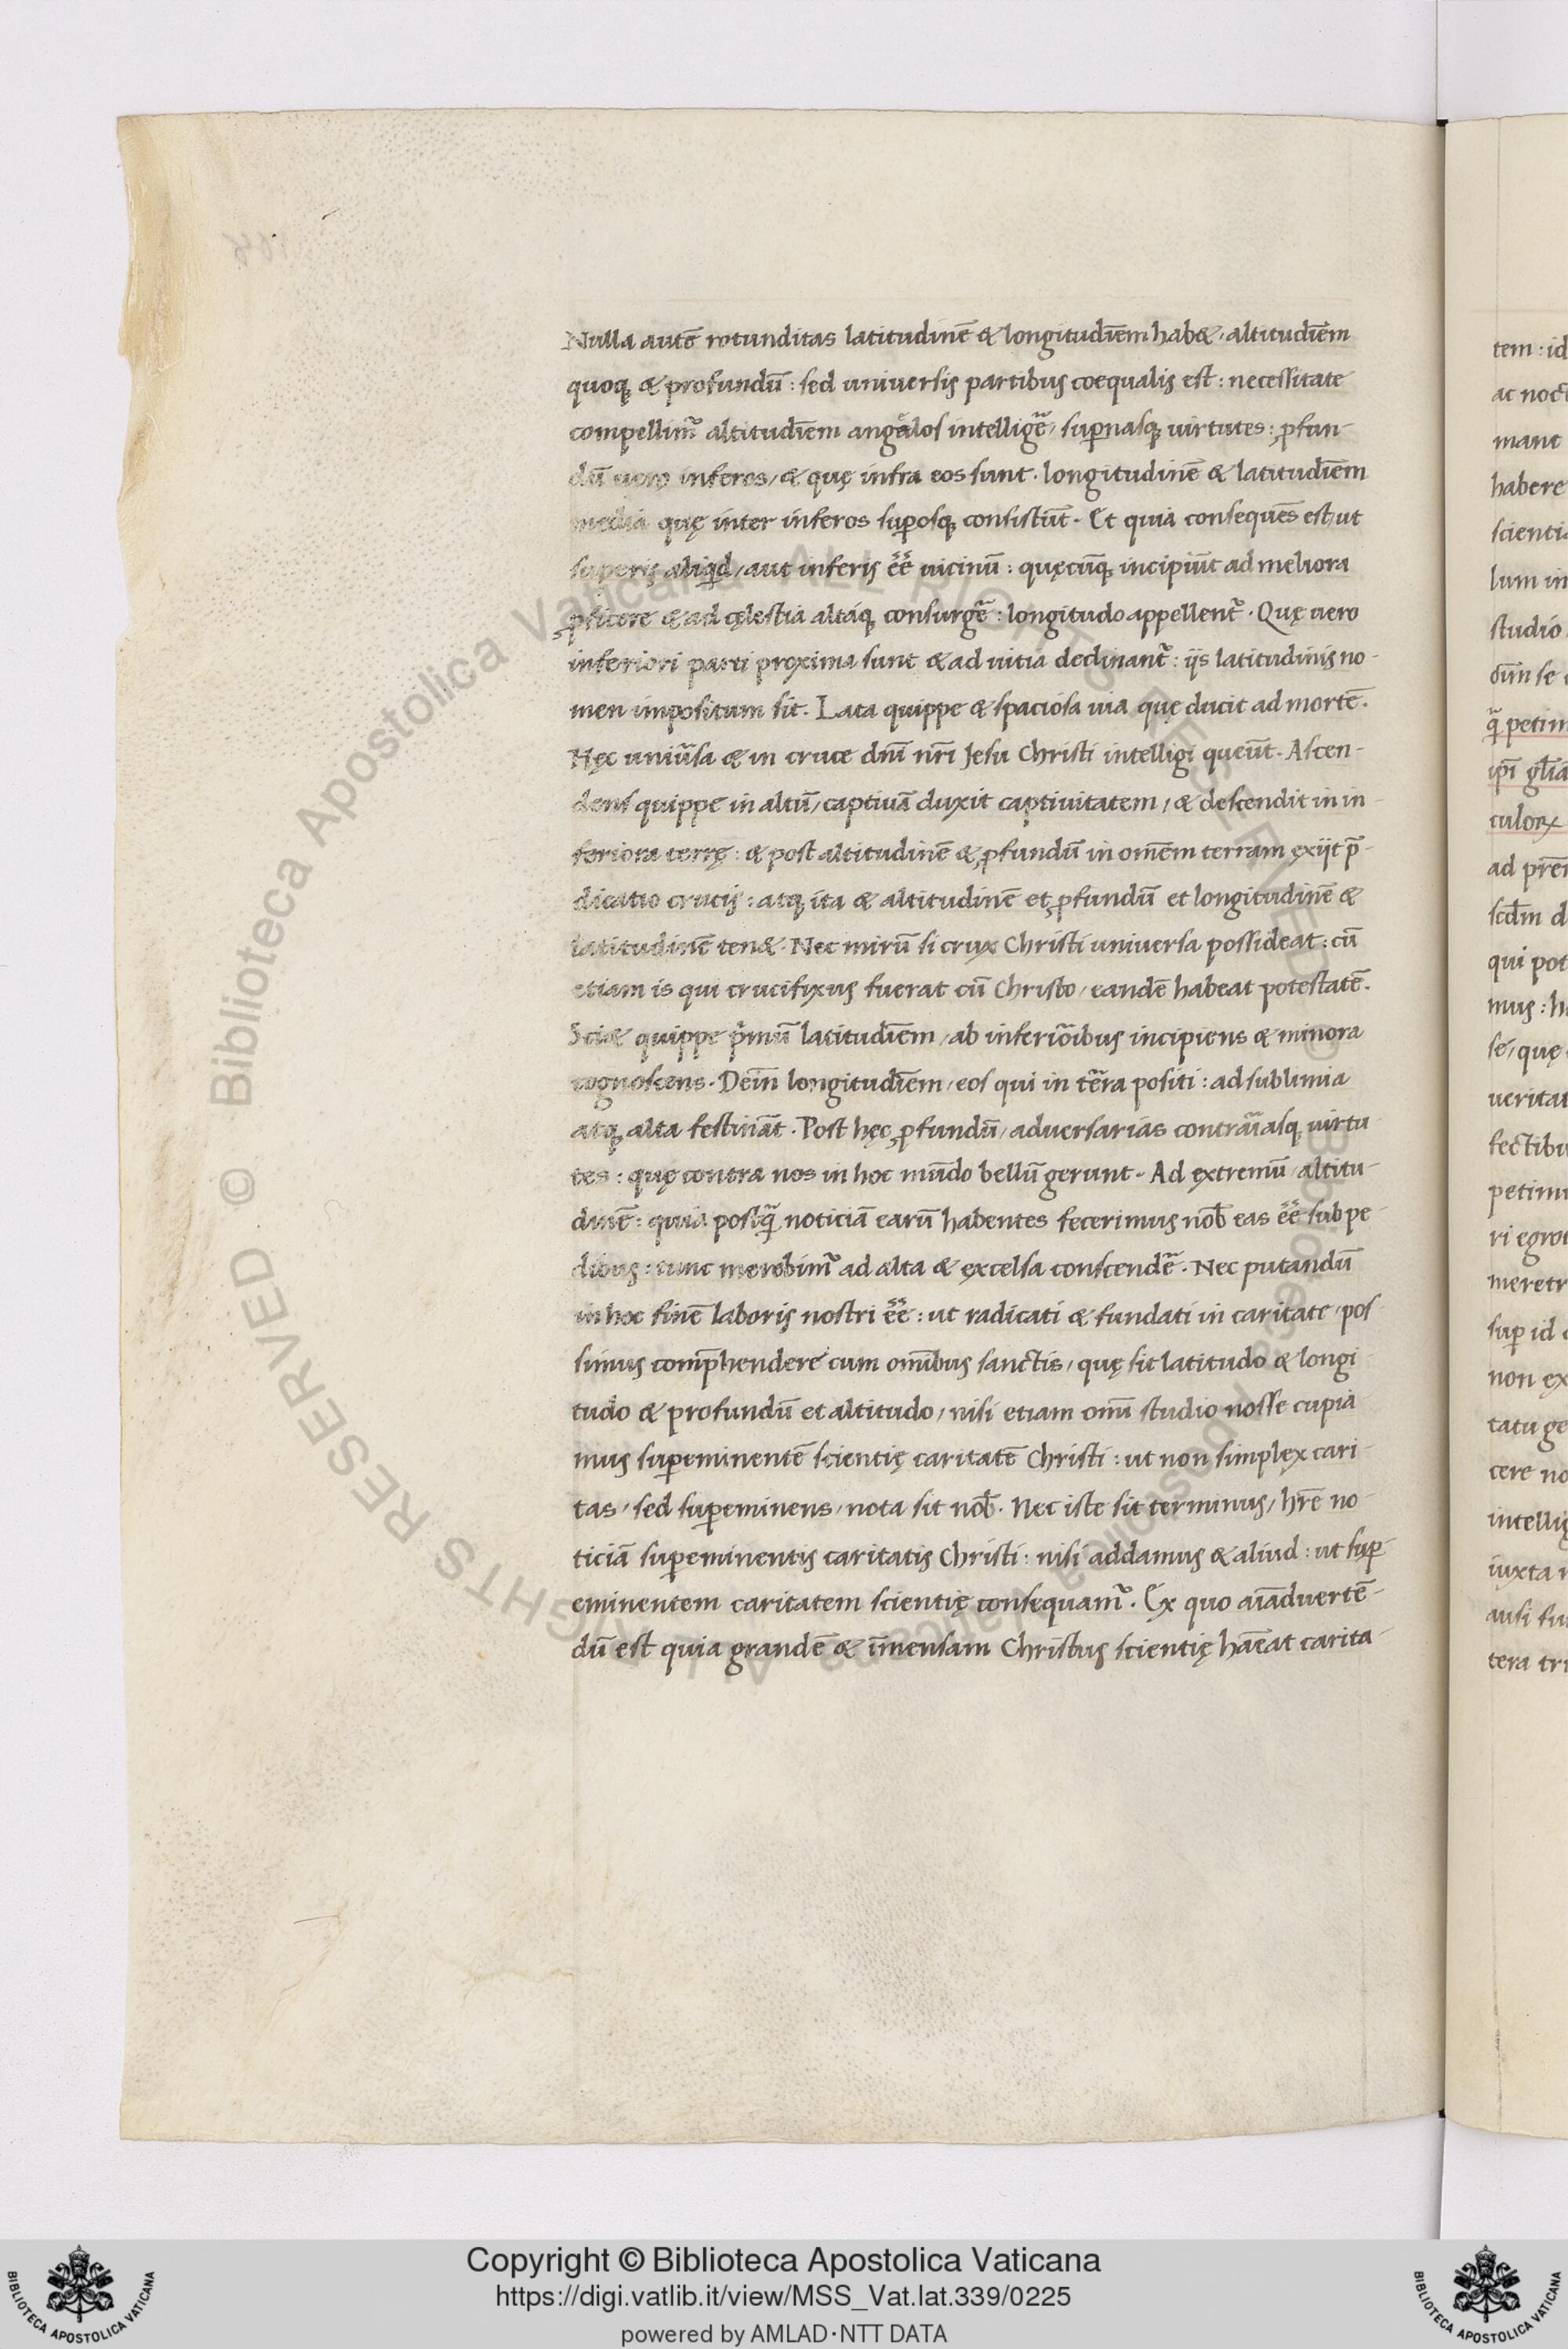 Nulla autē rotunditas latitudinē & longitudīem hab&, altitudīem
quoq; & profundū : sed universis partibus coequalis est : necessitate
compellimꝰ altitudīem angelos intelligē, suꝑnasq; uirtutes : ꝓfun-
dū uero inferos, & quę infra eos sunt. longitudinē & latitudīem
media quę inter inferos suꝑosq; consistūt. Et quia consequēs est, ut
superis aliqd, aut inferis ēē uicinū : quęcūq; incipiūt ad meliora
ꝓficere & ad cęlestia altáq; consurgē : longitudo appellent᷑. Quę uero
inferiori parti proxima sunt & ad uitia declinant᷑ : ijs latitudinis no-
men impositum sit. Lata quippe & spaciosa uia quę ducit ad mortē.
Hęc uniūsa & in cruce dnī nrī Jesu Christi intelligi queūt. Ascen-
dens quippe in altū, captiuā duxit captiuitatem, & descendit in in-
feriora terrę : & post altitudinē & ꝓfundū in omēm terram exijt p̄-
dicatio crucis : atq; ita & altitudinē et ꝓfundū et longitudinē &
latitudinē ten&. Nec mirū si crux Christi universa possideat : cū
etiam is qui crucifixus fuerat cū Christo, eandē habeat potestatē.
Sci& quippe pͥmū latitudīem, ab inferiōibus incipiens & minora
cognoscens. Deīn longitudīem, eos qui in tēra positi : ad sublimia
atq; alta festināt. Post hęc ꝓfundū, adversarias contrāiasq; uirtu-
tes : quę contra nos in hoc mūdo bellū gerunt. Ad extremū, altitu-
dinē : quia postq̄ noticiā earū habentes fecerimus nob̄ eas ēē sub pe-
dibus : tunc merebimꝰ ad alta & excelsa conscendē. Nec putandū
in hoc finē laboris nostri ēē : ut radicati & fundati in caritate, pos-
simus comp̄hendere cum omībus sanctis, quę sit latitudo & longi-
tudo & profundū et altitudo, nisi etiam omī studio nosse cupia-
mus suꝑeminentē scientię caritatē Christi : ut non simplex cari-
tas, sed suꝑeminens, nota sit nob̄. Nec iste sit terminus, hr̄e no-
ticiā suꝑeminentis caritatis Christi : nisi addamus & aliud : ut suꝑ-
eminentem caritatem scientię consequamꝰ. Ex quo aīadvertē-
dū est quia grandē & īmensam Christus scientię hābeat carita-
tem : id
ac noct
mant
habere
scientia
lum in
studio
oūn se
q̄ petim
ipī glīā
culoꝝ
ad prēm
scdm d
qui pot
mus : h
se, quę
veritat
fectibu
petimu
ri egrot
meretr
suꝑ id
non ex
tatu ge
cere no
intellig
iuxta
ausi fu
tera tri
© Biblioteca Apostolica Vaticana ALL RIGHTS RESERVED
© Biblioteca Apostolica Vaticana ALL RIGHTS RESERVED
Copyright © Biblioteca Apostolica Vaticana
https://digi.vatlib.it/view/MSS_Vat.lat.339/0225
powered by AMLAD·NTT DATA
BIBLIOTECA APOSTOLICA VATICANA
BIBLIOTECA APOSTOLICA VATICANA